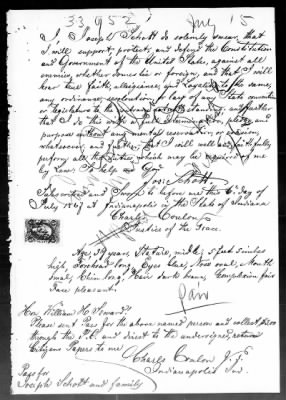 33,952 July 15
I, Joseph Schott do solemnly swear, that
I will support, protect, and defend the Constitution
and Government of the United States, against all
enemies, whether domestic or foreign, and that I will
bear true faith, allegiance, and loyalty to the same,
any ordinance, resolution, or law of any State Convention
or Legislature to the contrary notwithstanding, and further
that I do this with a full determination, pledge, and
purpose without any mental reservation or evasion,
whatsoever, and further, that I will well and faithfully
perform all the duties which may be required of me
by law. So help me God.
Schott
Subscribed and Sworn to before me this 6 day of
July 1867 at Indianapolis in the State of Indiana
Charles Coulon
Justice of the Peace
Age, 39 years, Stature, middle, 5 feet 5 inches
high, Forehead long, Eyes black, Nose oval, Mouth
small, Chin long, Hair dark brown, Complexion fair
Face pleasant.
fair
Hon. William H. Seward
Please send Pass for the above named person and collect
through the and direct to the undersigned, return
Citizens Papers to me
Charles Coulon J.P.
Indianapolis Ind.
Pass for
Joseph Schott and family